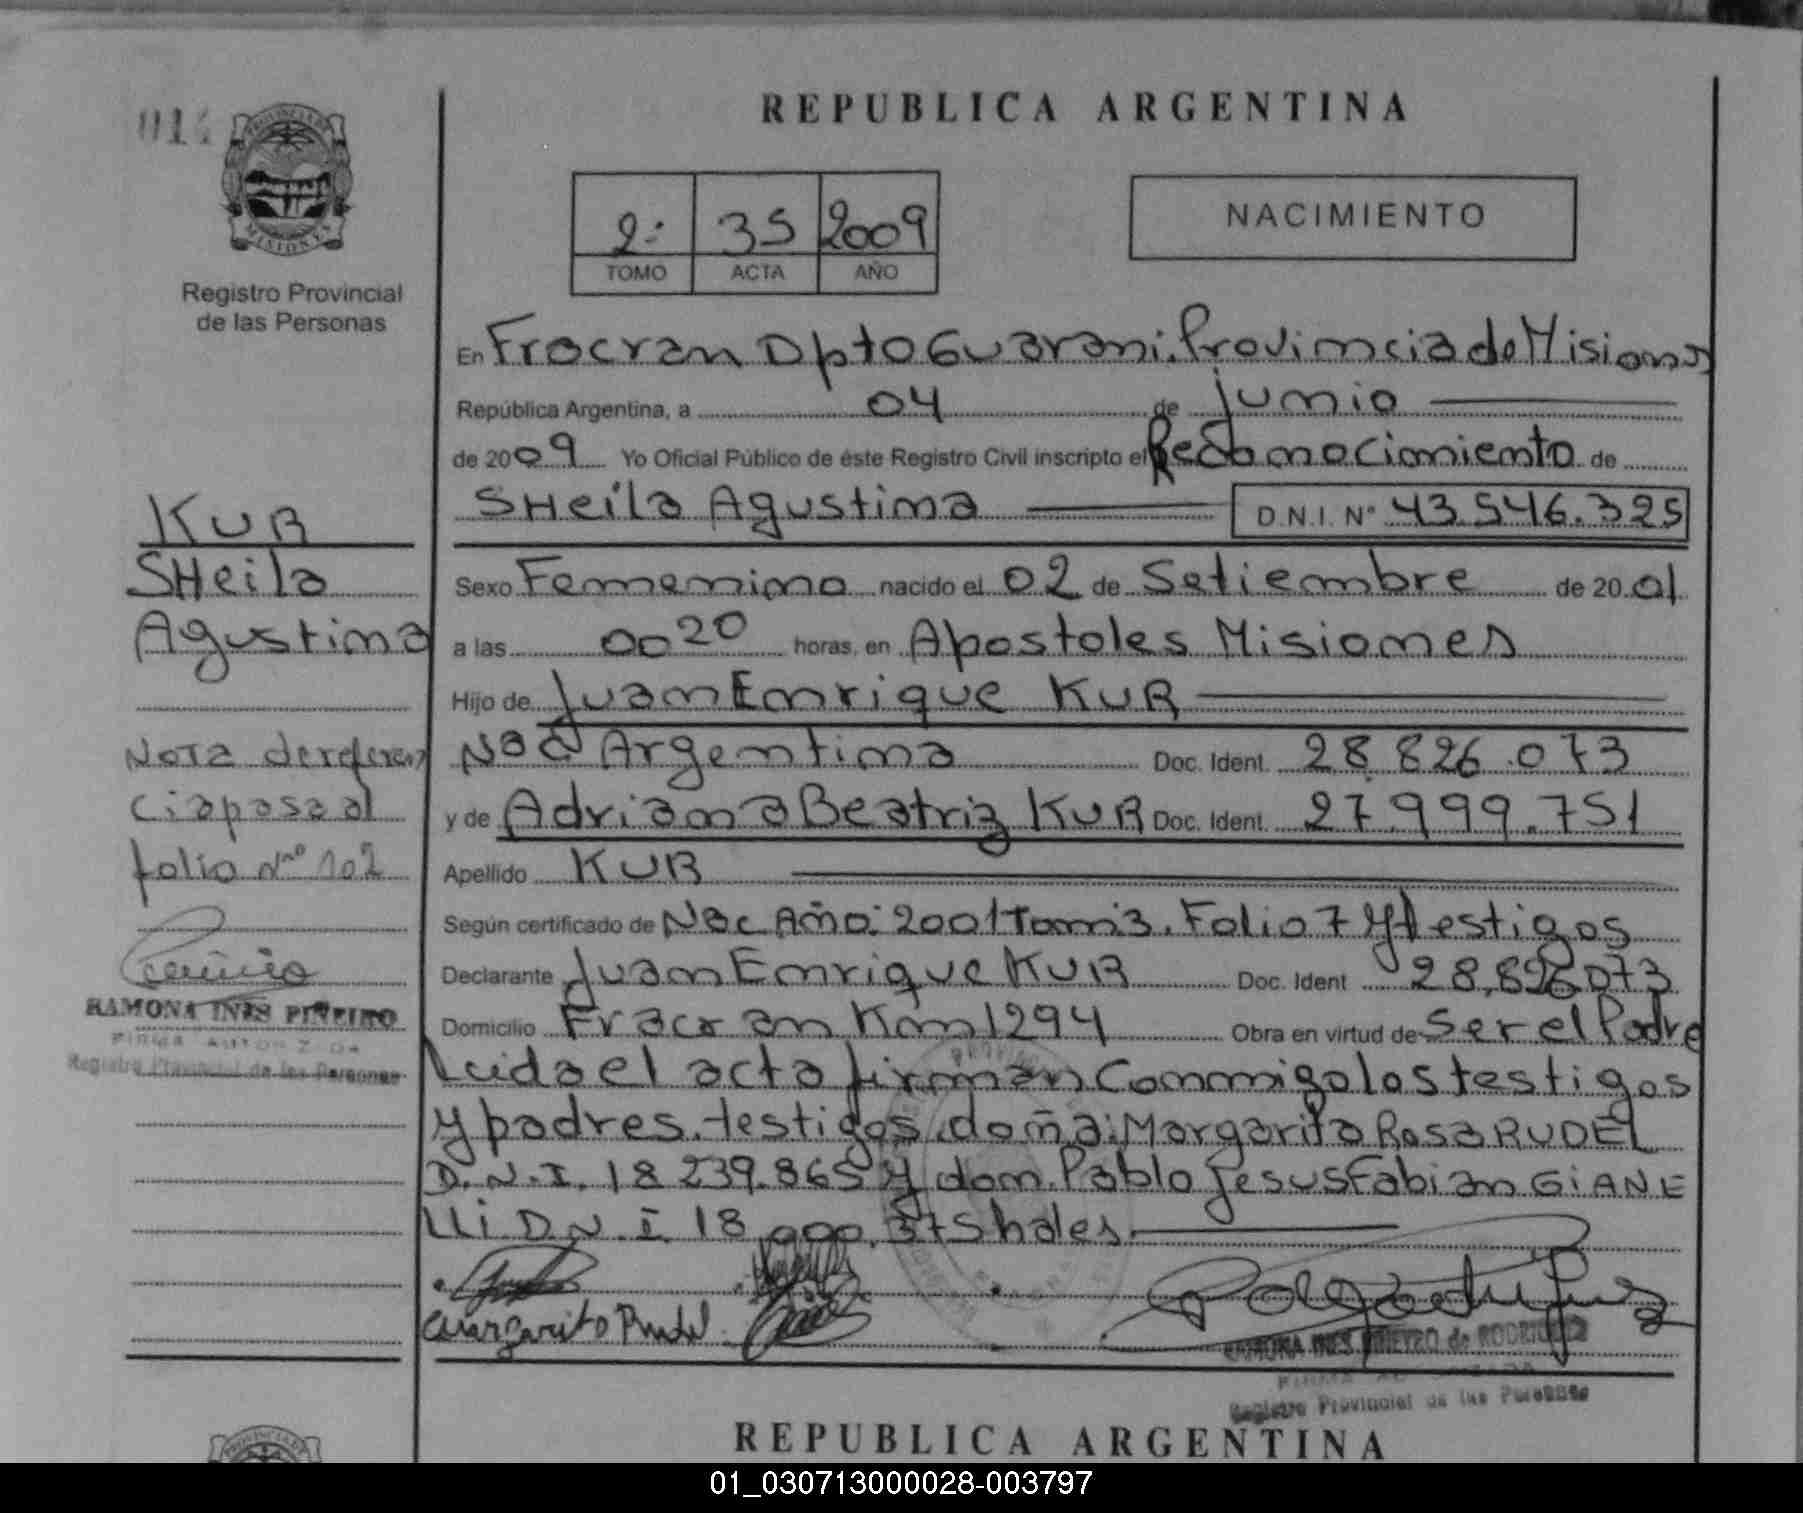 REPUBLICA ARGENTINA
PROVINCIA DE
MISIONES
Registro Provincial
de las Personas
2º 35 2009
TOMO ACTA AÑO
NACIMIENTO
En Fracran Dpto Guarani. Provincia de Misiones
República Argentina, a 04 de junio
de 2009 Yo Oficial Público de éste Registro Civil inscripto el Reconocimiento de
SHeila Agustina D.N.I. Nº 43.546.325
Sexo Femenino nacido el 02 de Setiembre de 2001
a las 00 20 horas, en Apostoles Misiones
Hijo de Juan Enrique KUR
Nac Argentina Doc. Ident. 28.826.073
y de Adriana Beatriz KUR Doc. Ident. 27.999.751
Apellido KUR
Según certificado de Nac Año: 2001 Tom:3. Folio 7 y testigos
Declarante Juan Enrique KUR Doc. Ident 28,826073
Domicilio Fracran Km 1294 Obra en virtud de Ser el Padre
Leida el acta firman Conmigo los testigos
y padres. testigos. doña: Margarita Rosa RUDEL
D.N.I. 18 239.865 y don. Pablo Jesus Fabian GiANE
LLi D.N.I. 18.000.375 hales.
Margarita Rudel
RAMONA INES PIÑEYRO de RODRIGUEZ
Registro Provincial de las Personas
KUR
SHeila
Agustina
Nota de referen
cia pasa al
folio Nº 102
RAMONA INES PIÑEIRO
FIRMA AUTORIZADA
Registro Provincial de las Personas
REPUBLICA ARGENTINA
01_030713000028-003797